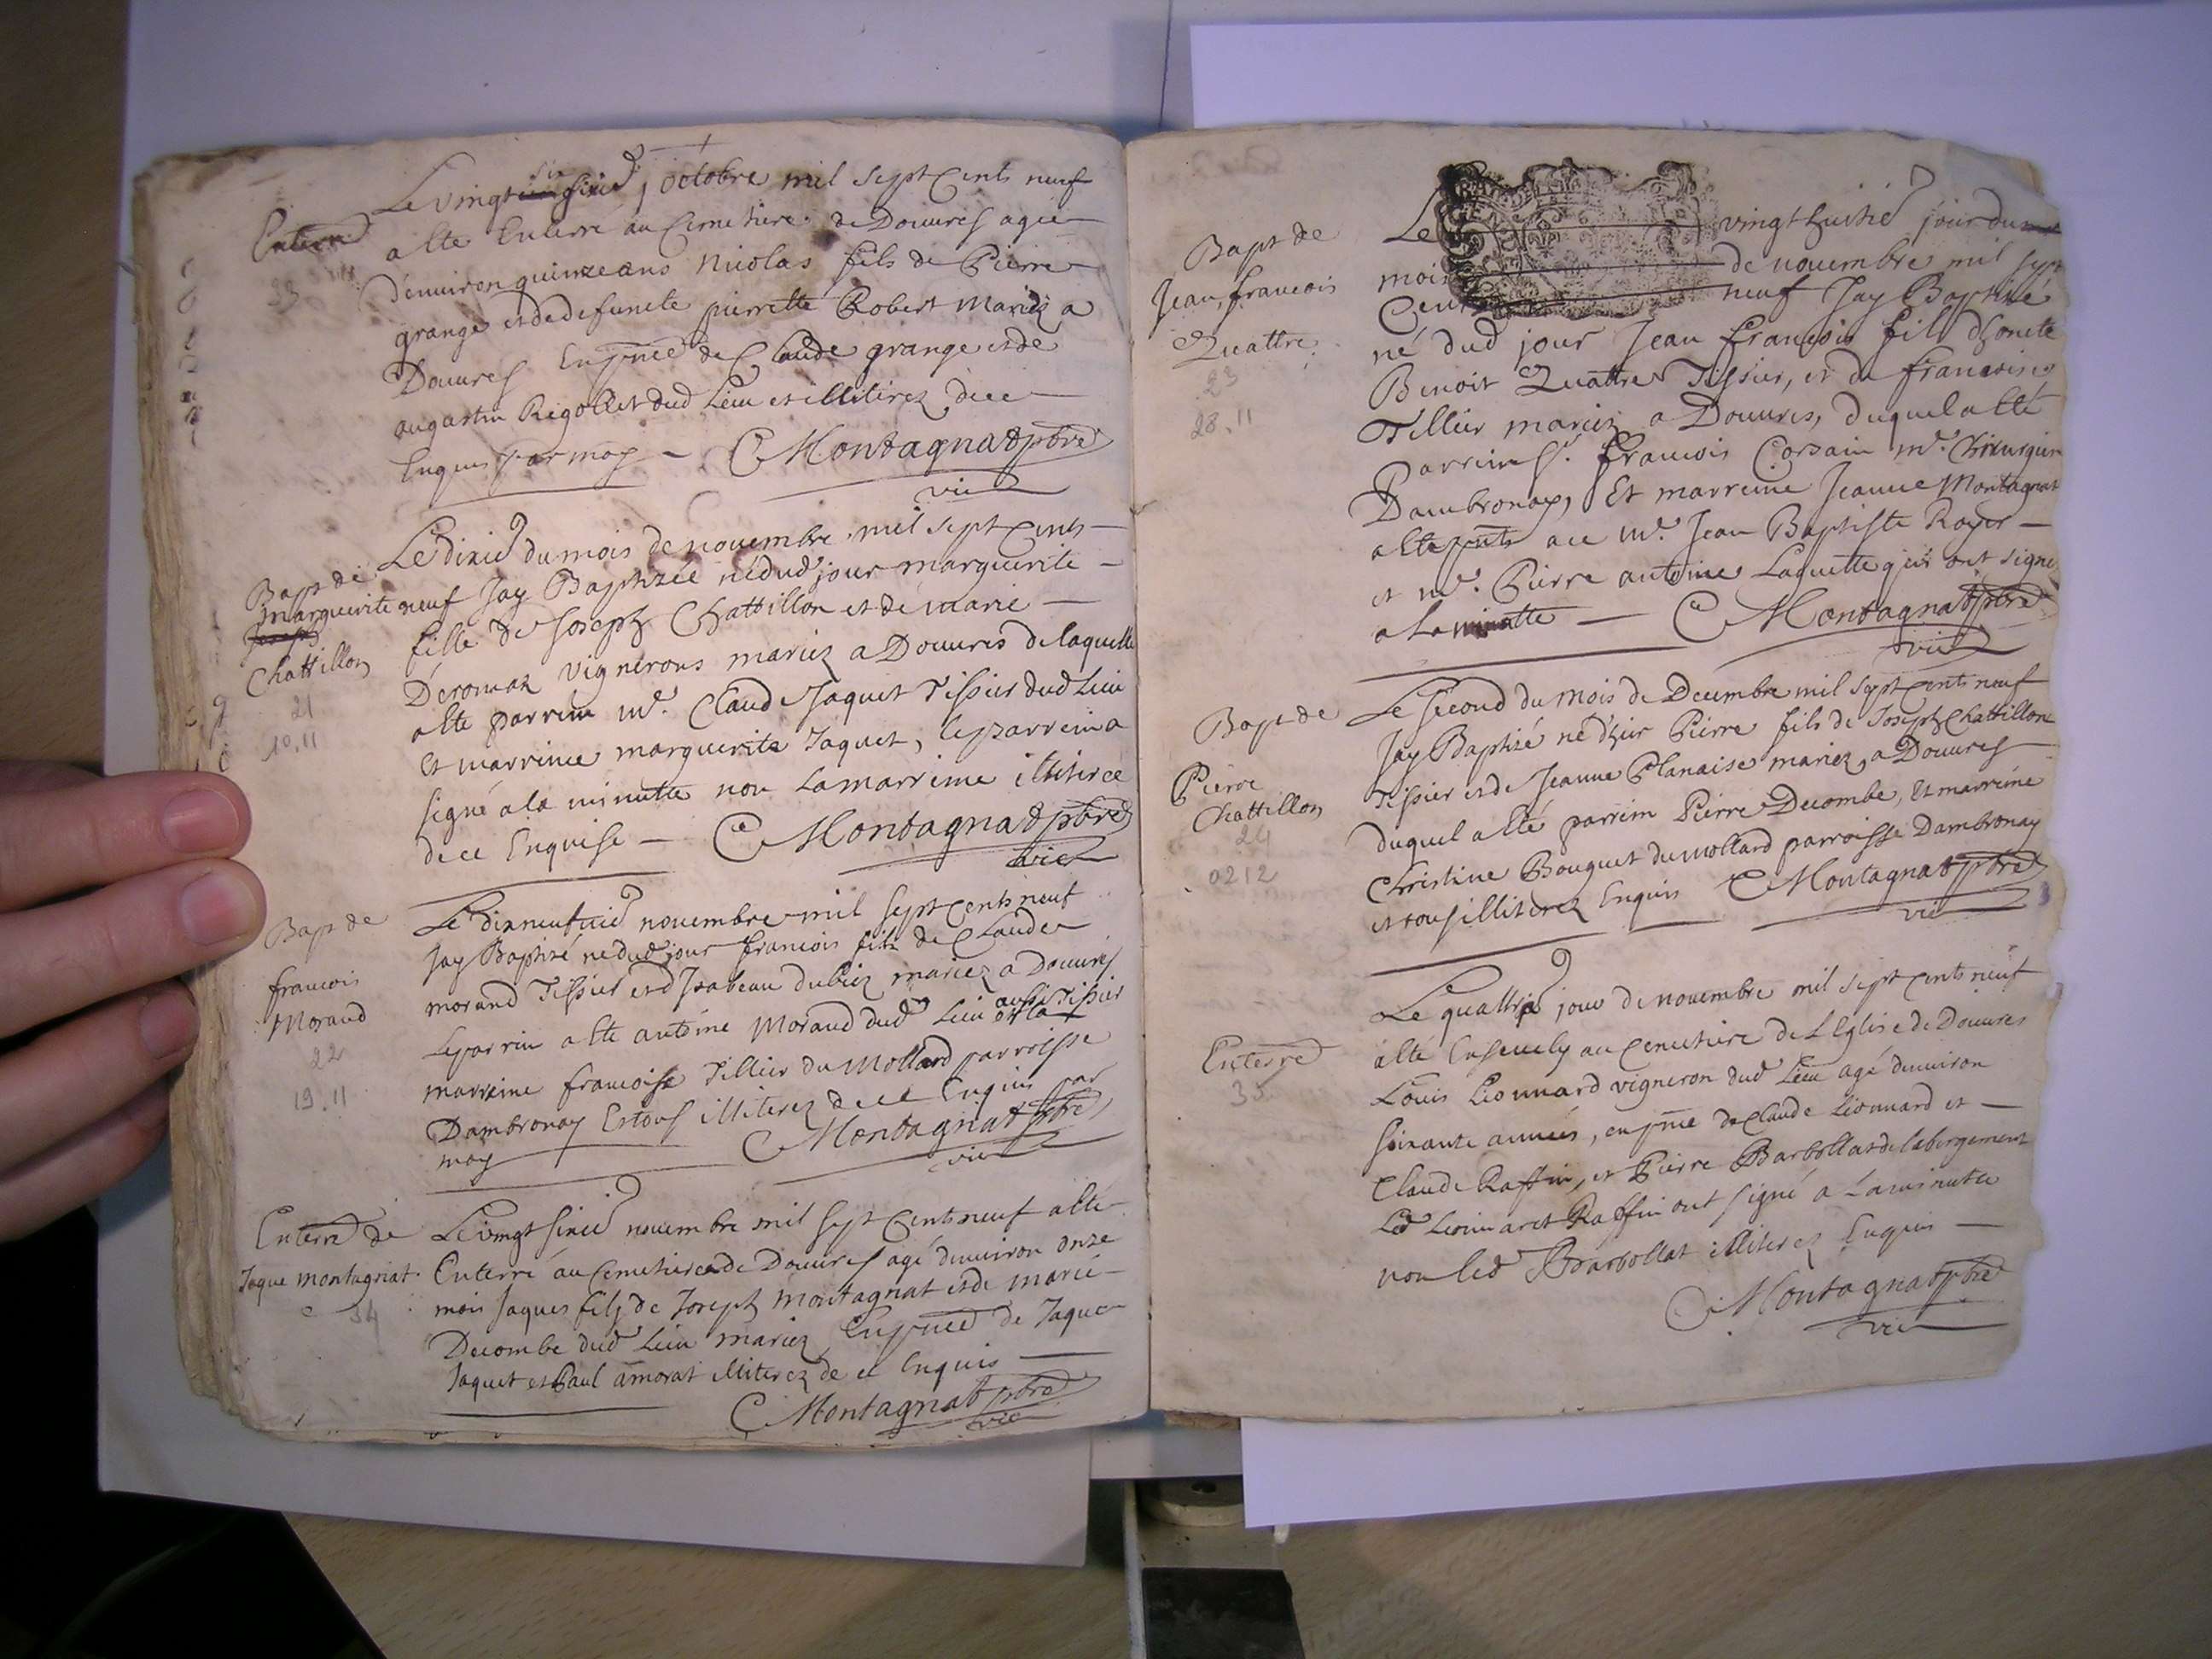 Enterré
33
Le vingt six octobre mil sept cents neuf
a Esté Enterré au Cemetiere de Douures agée
d'enuiron quinze ans Nicolas fils de Pierre
grange et de defuncte pierrette Robert Mariez a
Douures En pnce de Claude grange et de
augastin Rigollet dud Lieu et illiterez de ce
Enquis par moy — C Montagnat pbre
vic
Bapt de
Marguerite
Chattillon
21
10.11
Le dixie du mois de nouembre mil sept cents —
neuf Jay Baptizée né dud jour marguerite —
fille de Joseph Chattillon et de marie —
Deromaz vignerons mariez a Douures de laquelle
a Esté parrein me. Claude Jaquet Tissier dud Lieu
et marreine marguerite Jaquet, le parrein a
signé a la minutte non La marreine illiterée
de ce Enquise — C Montagnat pbre
vic
Bapt de
francois
Morand
22
19.11
Le dixneufuie nouembre mil sept cents neuf
Jay Baptizé né dud jour francois fils de Claude
morand Tissier et d'Isabeau dubiez mariez a Douures
Le parrin a esté antoine Morand dud Lieu aussi Tissier
et la
marreine francoise Tillier du Mollard parroisse
Dambronay Et tous illiterez de ce Enquis par
moy C Montagnat pbre
vic
Enterré de
Jaque montagnat
34
Le vingt sixie nouembre mil sept Cents neuf a Esté
Enterré au Cemetiere de Douures agé denuiron onze
mois Jaques fils de Joseph Montagnat et de marie
Decombe dud Lieu mariez, En pnce de Jaque
Jaquet et Paul amorat illiterez de ce Enquis —
C Montagnat pbre
vic
Bapt de
Jean francois
Quattre
23
28.11
Le vingt huitie jour du
mois de nouembre mil sept
Cent neuf Jay Baptizé
né dud jour Jean francois fils d'honete
Benoit Quattre Tissier, et de francoise
Tillier mariez a Douures, duquel a Esté
Parrein Sr. francois Corsain me. Chirurgien
Dambronay, Et marreine Jeanne Montagnat
a Este pnts auec me. Jean Baptiste Royer —
et me. Pierre antoine Laguette qui ont signé
a La minutte — C Montagnat pbre
vic
Bapt de
Pierre
Chattillon
24
0212
Le second du mois de Decembre mil sept cents neuf
Jay Baptizé né d'hier Pierre fils de Joseph Chattillon
Tissier et de Jeanne Planaise mariez a Douures
duquel a Esté parrein Pierre Decombe, Et marreine
Christine Bouquet du Mollard parroisse Dambronay
et tous illiterez Enquis C Montagnat pbre
vic
Enterré
35
Le quattrie jour de nouembre mil sept cents neuf
a Esté Enseuely au Cemetiere de L'Eglise de Douures
Louis Lionnard vigneron dud Lieu agé denuiron
soixante années, en pnce de Claude Lionnard et —
Claude Raffin, et Pierre Barbollat de labergement
Led Lionnard et Raffin ont signé a La minutte
non led Barbollat illiterez Enquis —
C Montagnat pbre
vic